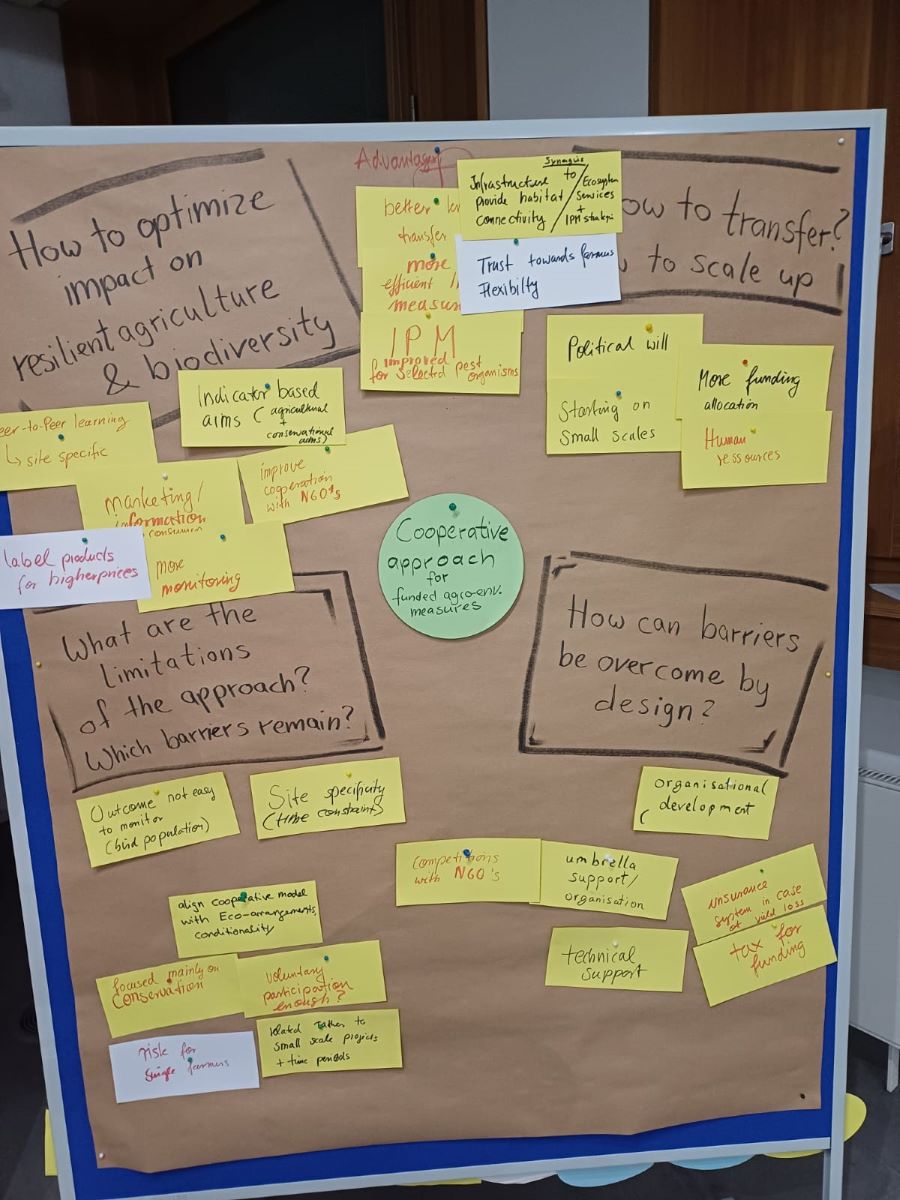 How to optimize
impact on
resilient agriculture
& biodiversity
Advantages
better
transfer
more
efficient
IPM
improved
for selected pest
organisms
Synergies
Infrastructure to
provide habitat /
connectivity
Ecosystem
Services
+
IPM
Trust towards farmers
Flexibilty
ow to transfer?
to scale up
Political will
Starting on
Small scales
More funding
allocation
Human
ressources
Indicator based
aims (agricultural
+
conservational
aims)
eer-to-Peer learning
↳ site specific
marketing/
information
improve
cooperation
with NGO's
label products
for higher prices
more
monitoring
Cooperative
approach
for
funded agro-env.
measures
What are the
limitations
of the approach?
Which barriers remain?
How can barriers
be overcome by
design?
Outcome not easy
to monitor
(bird population)
Site specificity
(time constraint)
align cooperative model
with Eco-arrangements,
conditionality
focused mainly on
conservation
voluntary
participation
enough?
risk for
single farmers
related rather to
small scale projects
+ time periods
organisational
development
Competitions
with NGO's
umbrella
support/
organisation
technical
support
insurance
system in case
of yield loss
tax for
funding